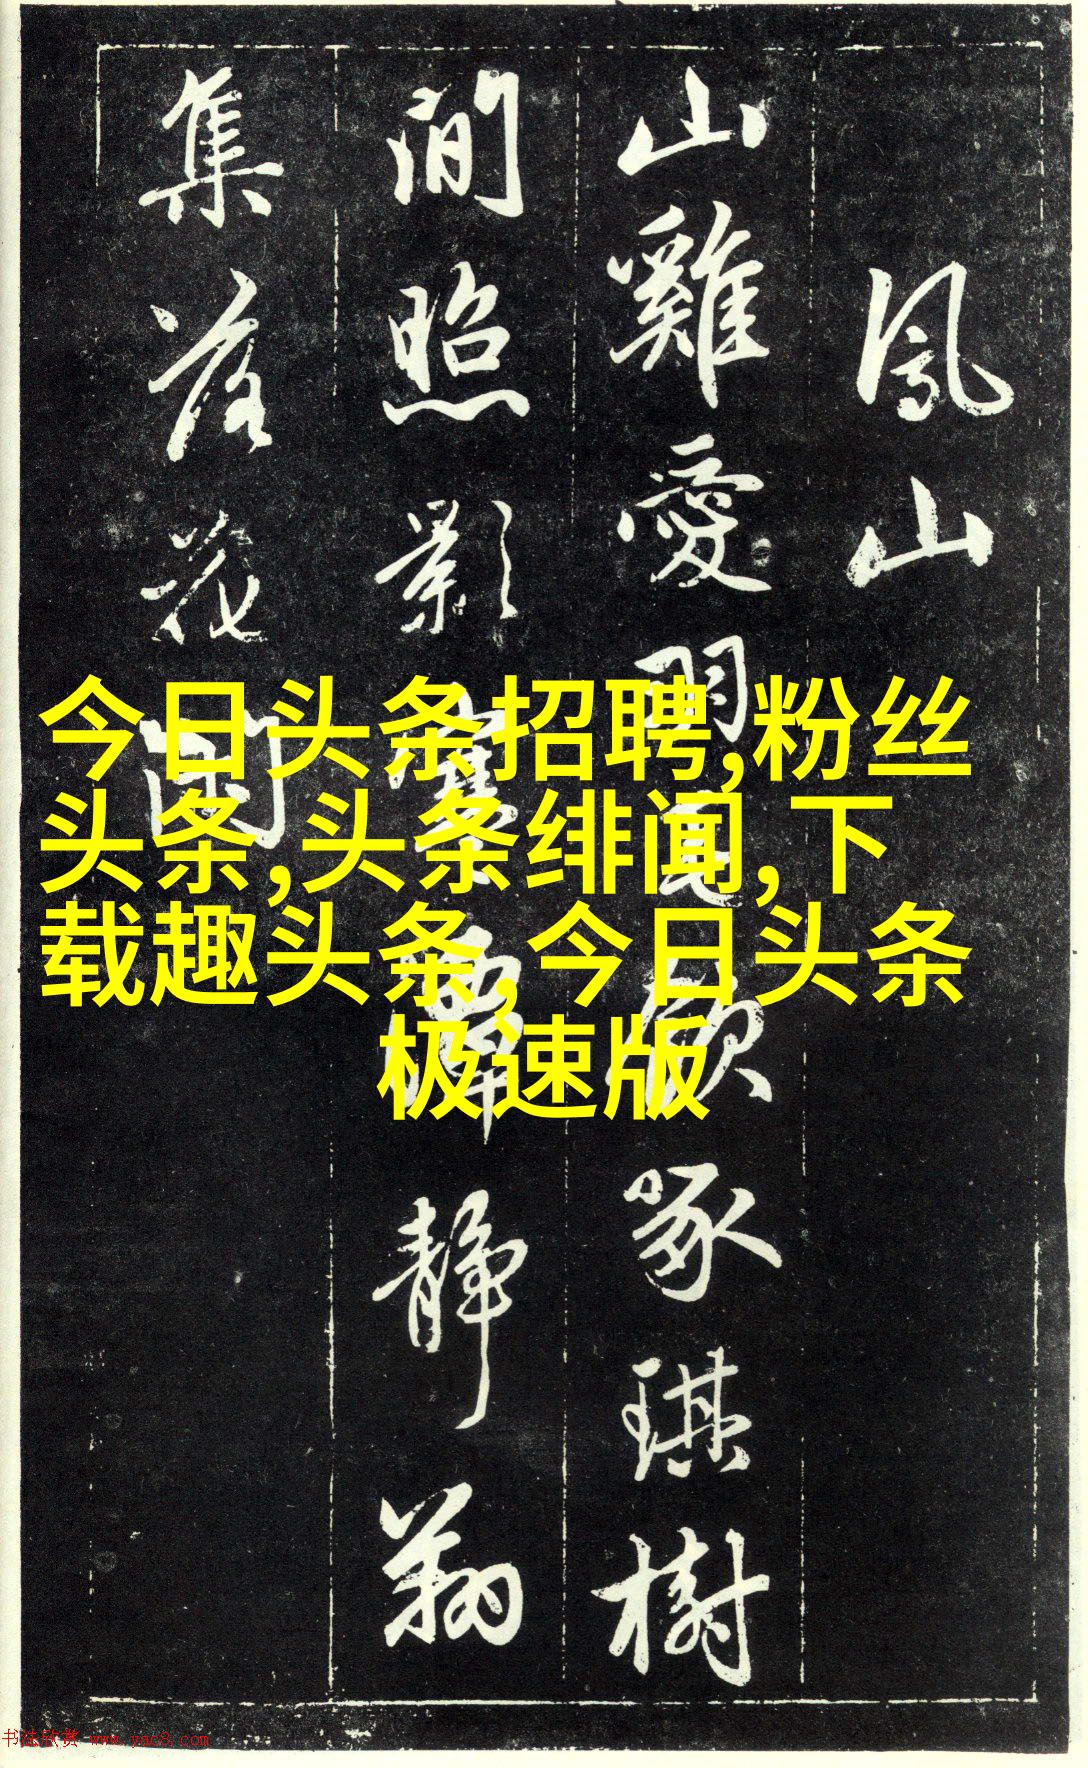 鳳山
山雞愛羽毛飲啄琪樹
間照影寒潭靜翔
集落花閑
今日头条招聘,粉丝
头条,头条绯闻,下
载趣头条, 今日头条
极速版
书法欣赏 www.yac8.com